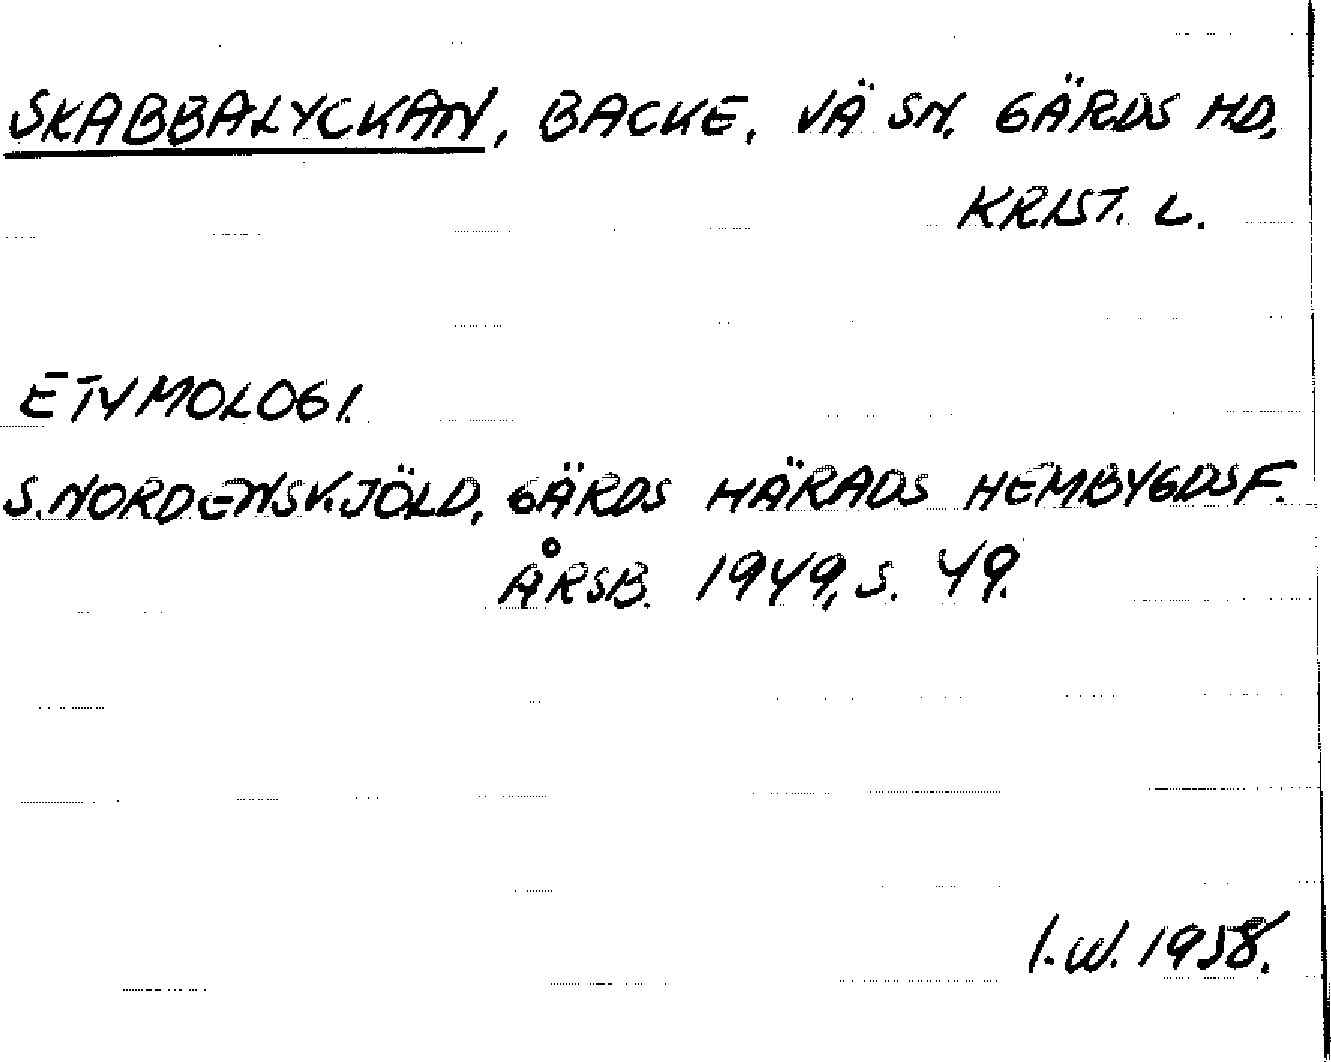 SKABBALYCKAN, BACKE, VÄ SN. GÄRDS HD,
KRIST. L.
ETYMOLOGI.
S. NORDENSKJÖLD, GÄRDS HÄRADS HEMBYGDSF.
ÅRSB. 1949, S. 49.
I.W. 1958.